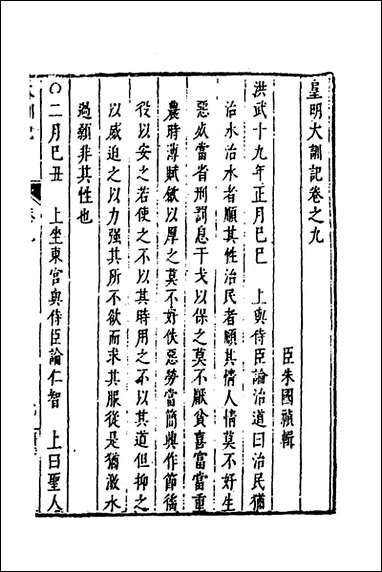 皇明大訓記卷之九
臣朱國禎輯
洪武十九年正月巳巳　上與侍臣論治道曰治民猶
治水治水者順其性治民者順其情人情莫不好生
惡死當省刑罰息干戈以保之莫不厭貧喜富當重
農時薄賦斂以厚之莫不好佚惡勞當簡興作節徭
役以安之若使之不以其時用之不以其道但抑之
以威迫之以力强其所不欲而求其服從是猶激水
過顙非其性也
○二月巳丑　上坐東宮與侍臣論仁智　上曰聖人